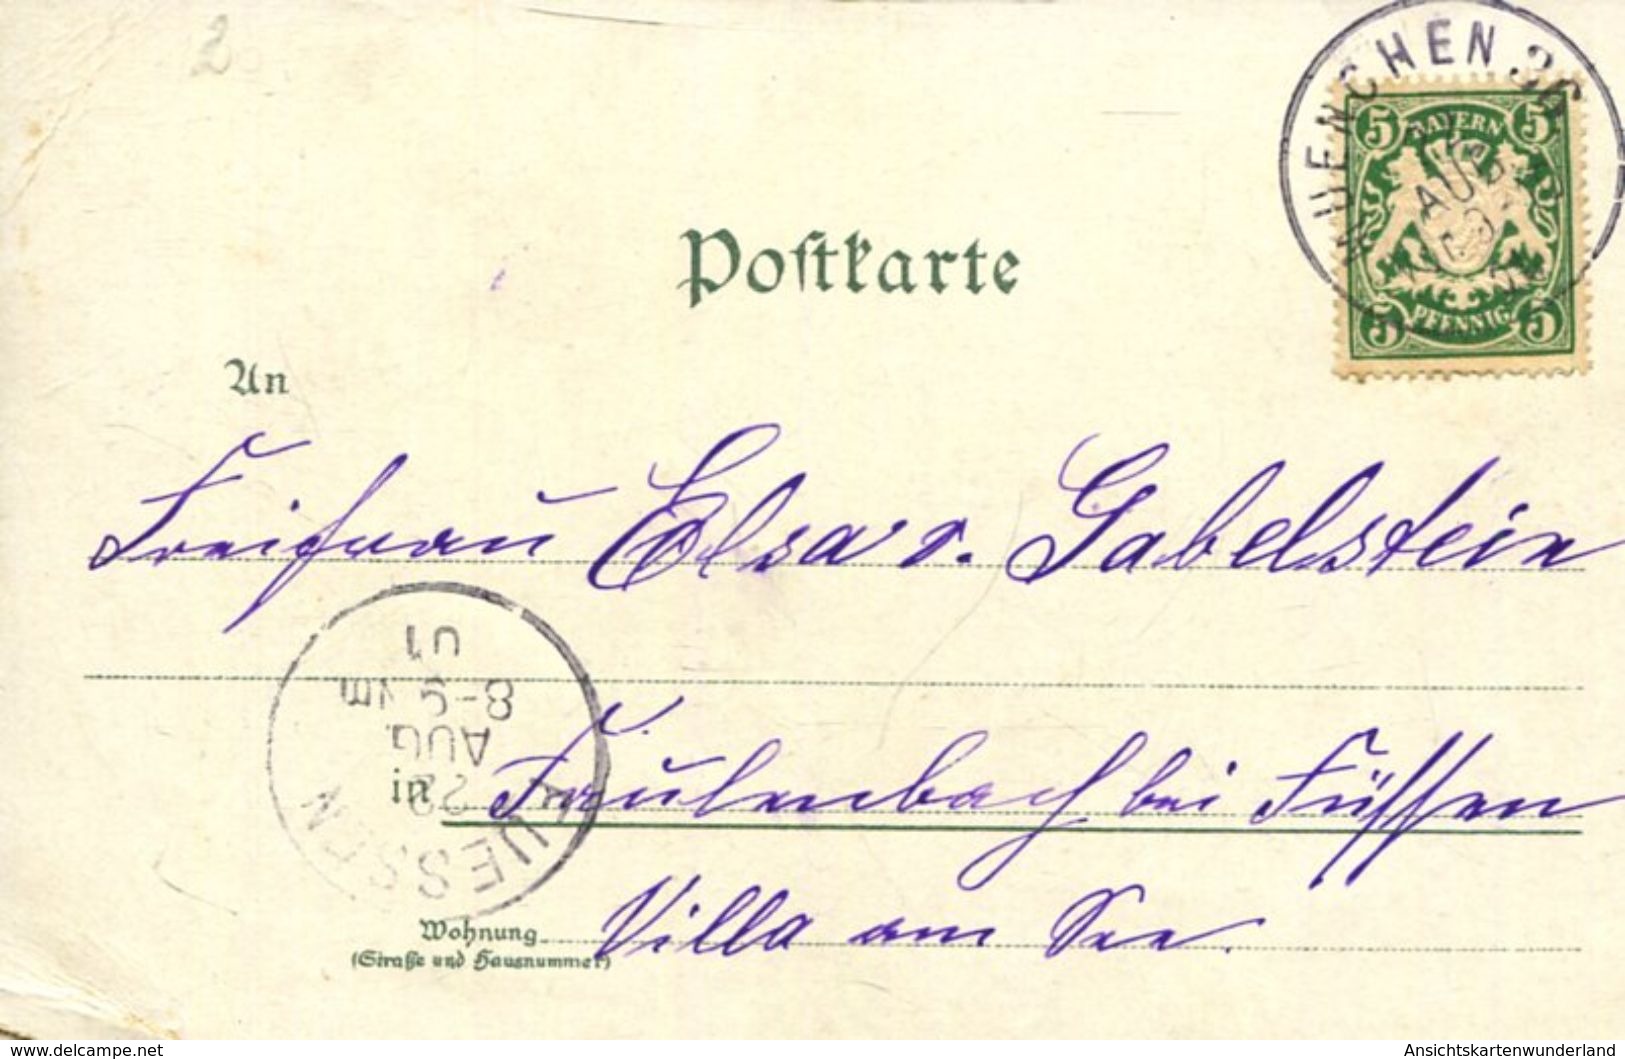 2
MUENCHEN 36
5 BAYERN 5
AUG
5 PFENNIG 5
Postkarte
An
Freifrau Elsa v. Gabelstein
FUESSEN
20
AUG.
8-9 Nm
01
in Faulenbach bei Füssen
Wohnung Villa am See.
(Straße und Hausnummer)
www.delcampe.net
Ansichtskartenwunderland